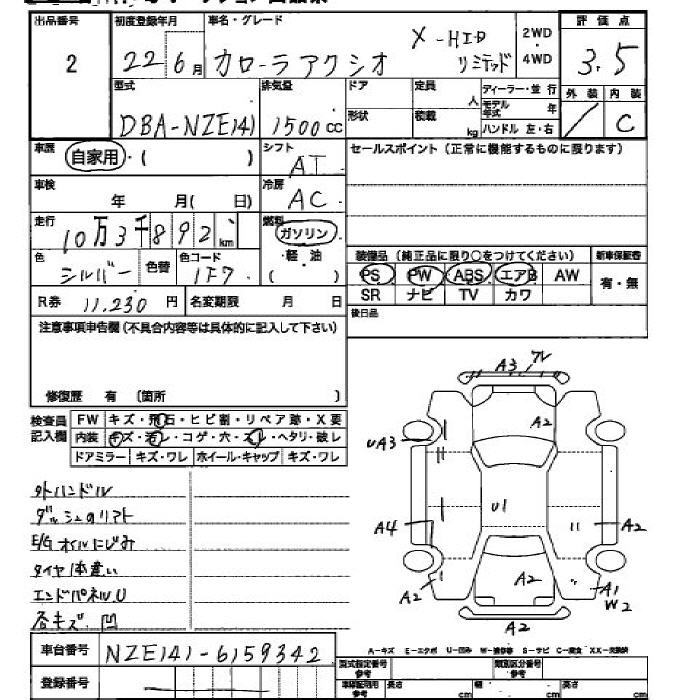 出品番号 初度登録年月 車名・グレード 評価点
2 22 6月 カローラアクシオ X-HID リミテッド 2WD・4WD 3.5
型式 排気量 ドア 定員 人 ディーラー・並行 外装 内装
DBA-NZE141 1500cc 形状 積載 kg モデル年式 年 ハンドル 左・右 / C
車歴 自家用・( ) シフト AT セールスポイント (正常に機能するものに限ります)
車検 年 月( 日) 冷房 AC
走行 10万3千892km 燃料 ガソリン・軽油 ( )
装備品 (純正品に限り○をつけてください) 新車保証書
色 シルバー 色替 色コード 1F7
PS PW ABS エアB AW 有・無
SR ナビ TV カワ
R券 11,230円 名変期限 月 日
後日品
注意事項申告欄 (不具合内容等は具体的に記入して下さい)
修復歴 有 〔箇所 〕
検査員記入欄
FW キズ・飛石・ヒビ割・リペア跡・X要
内装 キズ・汚レ・コゲ・穴・スレ・ヘタリ・破レ
ドアミラー キズ・ワレ ホイール・キャップ キズ・ワレ
外ハンドル
ダッシュのリアト
E/G オイルにじみ
タイヤ1本違い
エンドパネルU
各キズ、凹
A3 ワレ
A2
UA3
U1
A4
A2
A2
A2
A1
W2
A2
A-キズ E-エクボ U-凹み W-補修跡 S-サビ C-腐食 XX-交換済
車台番号 NZE141-6159342
型式指定番号 参考 類別区分番号 参考
登録番号
車庫証明用 参考 長さ cm 幅 cm 高さ cm